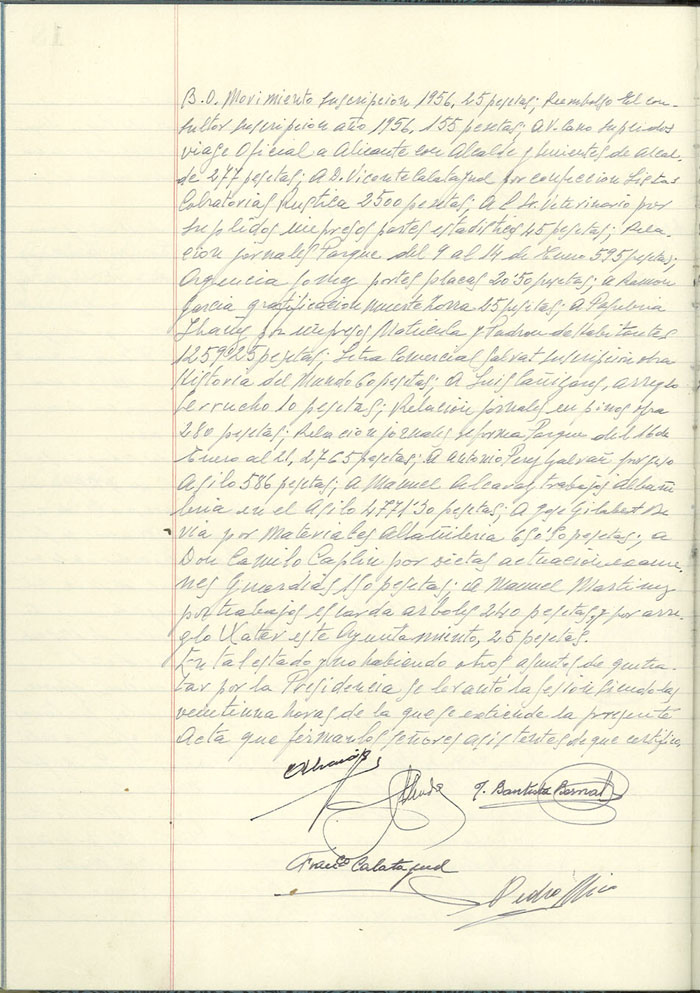 B.O. Movimiento suscripcion 1956, 25 pesetas; Reembolso El con-
sultor suscripcion año 1956, 155 pesetas; A V. Cano suplidos
viage Oficial a Alicante con Alcalde y tenientes de alcal-
de 277 pesetas; A D. Vicente Calatayud por confeccion Listas
Cobratorias Rustica 2500 pesetas; A l Sr. Veterinario por
suplidos impresos partes estadistica 45 pesetas; Rela-
cion jornales Parque del 9 al 14 de Enero 595 pesetas;
Argencia portes placas 20'50 pesetas; a Ramon
Garcia gratificacion muerte zorra 25 pesetas; A Papeleria
por impresos Matricula y Padron de Habitantes
1259'25 pesetas; Letra Comercial Salvat suscripcion obra
Historia del Mundo 60 pesetas; A Luis Cañizares, arreglo
serrucho 10 pesetas; Relacion jornales en pinos
280 pesetas; Relacion jornales reforma Parque del 16 de
Enero al 21, 2765 pesetas; A Antonio Perez Galvañ por yeso
Asilo 586 pesetas; A Manuel Alcaraz trabajos albañi-
leria en el Asilo 4771'30 pesetas; A Jose Gilabert De-
via por Materiales Albañileria 650'80 pesetas; a
Don Camilo Caplin por dietas actuacion exame-
nes Guardias 150 pesetas; A Manuel Martinez
por trabajos escarda arboles 240 pesetas, y por arre-
glo Water este Ayuntamiento, 25 pesetas.
En tal estado y no habiendo otros asuntos de que tra-
tar por la Presidencia se levantó la sesion siendo las
veintiuna horas de la que se extiende la presente
Acta que firman los señores asistentes de que certifico.
J. Bautista Bernal
Franco Calatayud
Pedro